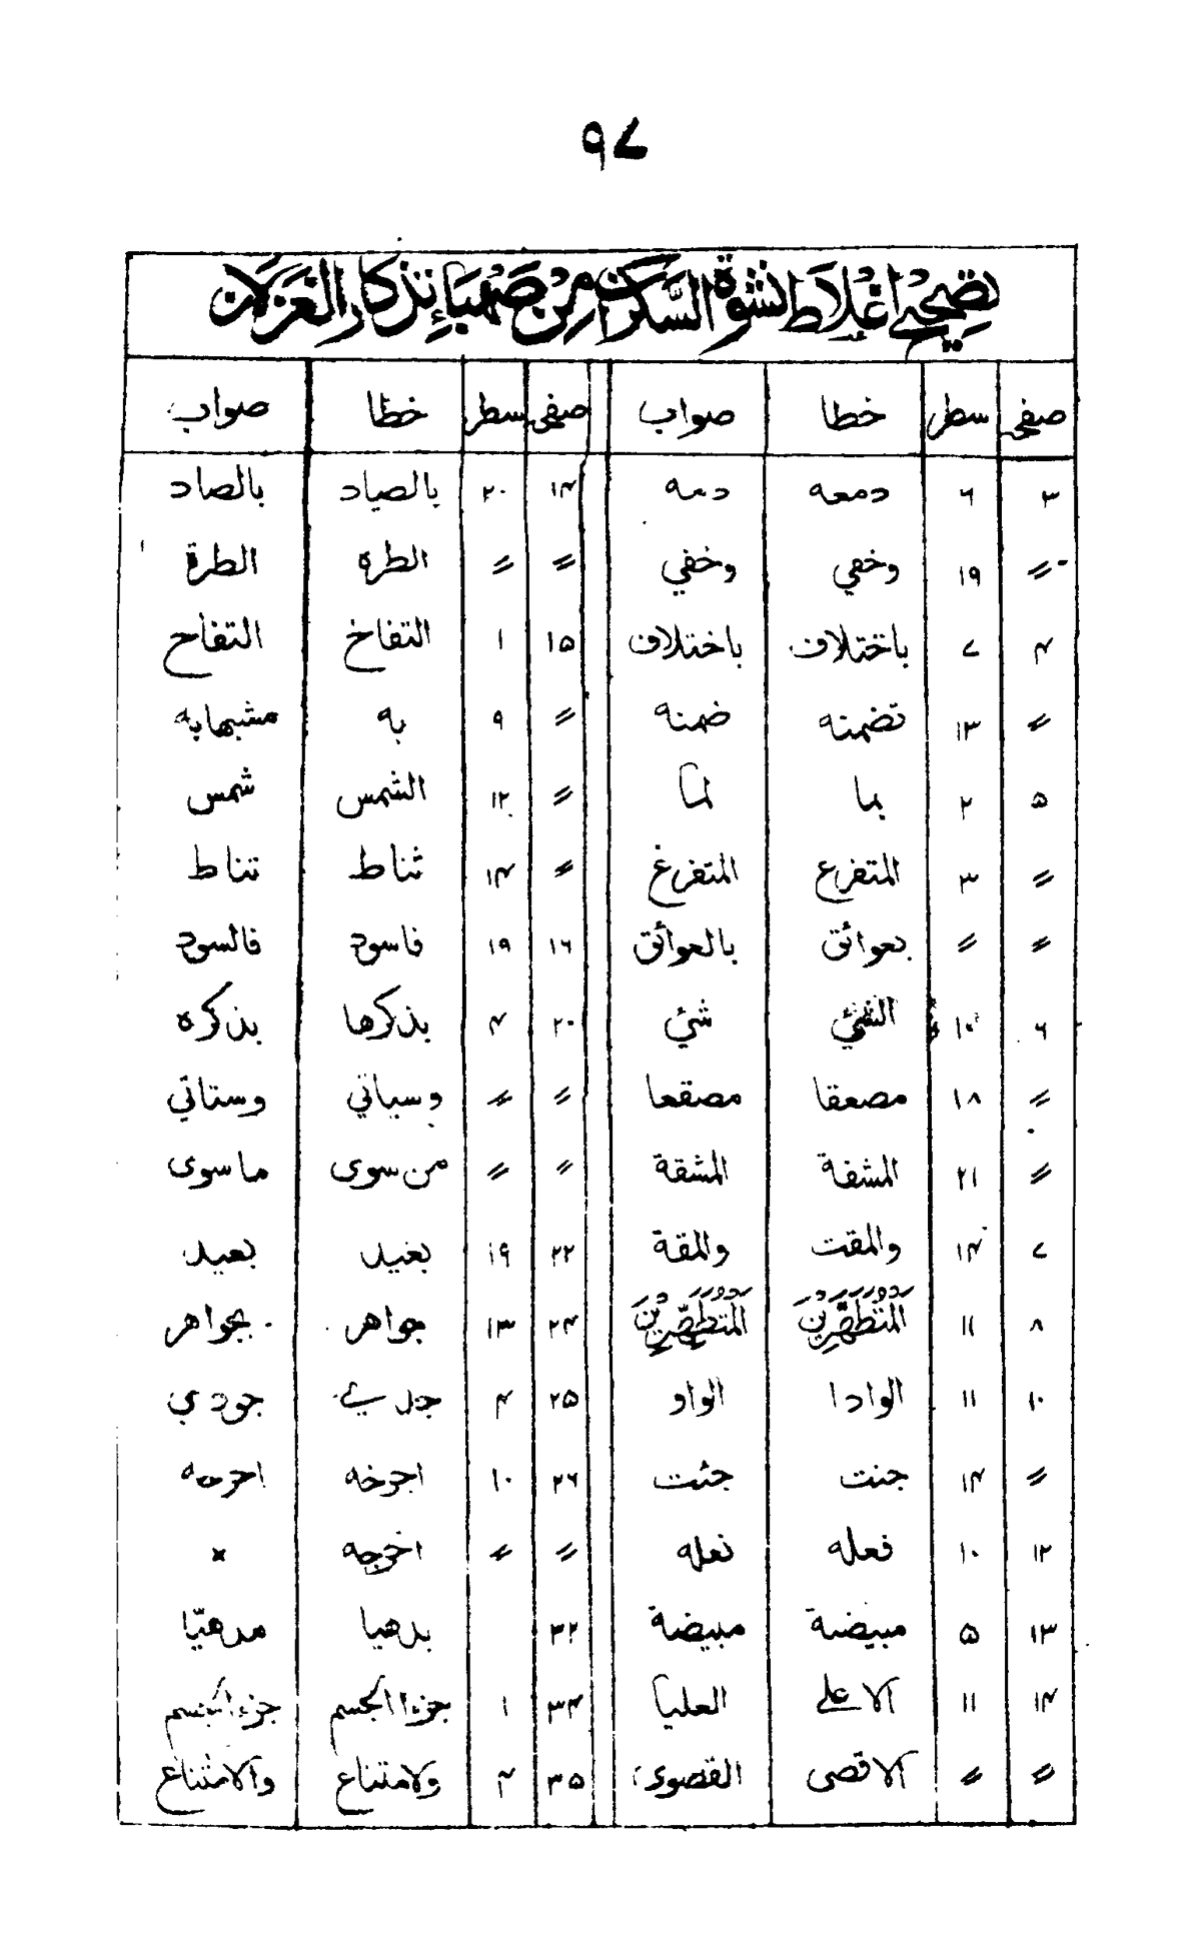 ٩٧
تصحيح اغلاط نشوة السكران من صهباء تذكار الغزلان
صفحہ سطر خطا صواب صفحہ سطر خطا صواب
٣ ٦ دمعه دمه ١٤ ٢٠ بالصياد بالصاد
〃 ١٩ وخفي وخفي 〃 〃 الطره الطرة
٤ ٧ باختلاف باختلاف ١٥ ١ التفاخ التفاح
〃 ١٣ تضمنه ضمنه 〃 ٩ به مشبهابه
۵ ٢ بما لما 〃 ١٢ الشمس شمس
〃 ٣ المتفرع المتفرغ 〃 ١٤ ثناط تناط
〃 〃 بعوائق بالعوائق ١٦ ١٩ فاسود فالسود
٦ ١٠ الشئ شئ ٢٠ ٤ بذكرها بذكره
〃 ١٨ مصعقا مصقعا 〃 〃 وسياتي وستاتي
〃 ٢١ المشفة المشقة 〃 〃 من سوى ما سوى
٧ ١٤ والمقت والمقة ٢٢ ١٩ بغيد بعيد
٨ ١١ المتطهرين المتطهرين ٢٤ ١٣ جواهر بجواهر
١٠ ١١ الوادا الواو ٢۵ ٤ جودي
〃 ١٤ جنت جئت ٢٦ ١٠ اجرخه
١٢ ١٠ فعله نعله 〃 〃 اخرجه ×
١٣ ۵ مبيضنة مبيضة ٣٢ بدهيا مدهيّا
١٤ ١١ الاعلے العليا ٣٤ ١ جزءا الجسم جزء الجسم
〃 〃 الاقصى القصوى ٣۵ ٤ ولامتناع والامتناع